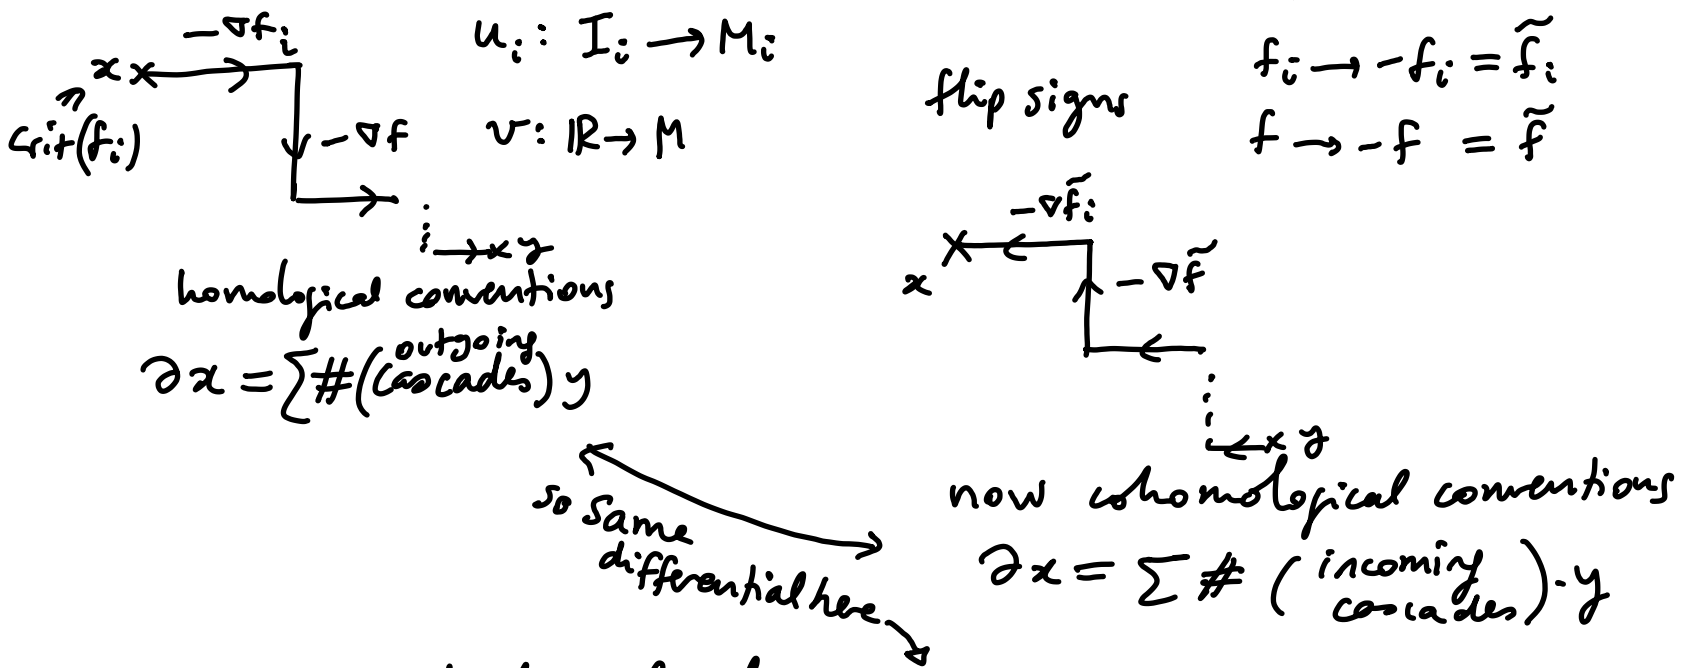 -∇f_i
x
crit(f_i)
-∇f
y
u_i: I_i → M_i
v: ℝ → M
homological conventions
∂x = Σ # (outgoing cascades) y
flip signs
f_i → -f_i = f̃_i
f → -f = f̃
-∇f̃_i
x
-∇f̃
y
now cohomological conventions
∂x = Σ # (incoming cascades) · y
so same
differential here